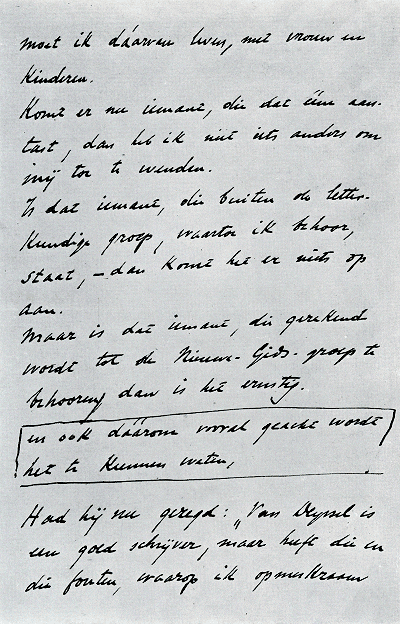 moet ik dáárvan leven, met vrouw en
kinderen.
Komt er nu iemand, die dat ééne aan-
tast, dan heb ik niet iets anders om
mij toe te wenden.
Is dat iemand, die buiten de letter-
kundige groep, waartoe ik behoor,
staat, – dan komt het er niets op
aan.
Maar is dat iemand, die gerekend
wordt tot de Nieuwe-Gids-groep te
behooren, dan is het ernstig.
en ook dáárom vooral geacht wordt
het te kunnen weten,
Had hij nu gezegd: „Van Deyssel is
een goed schrijver, maar heeft die en
die fouten, waarop ik opmerkzaam